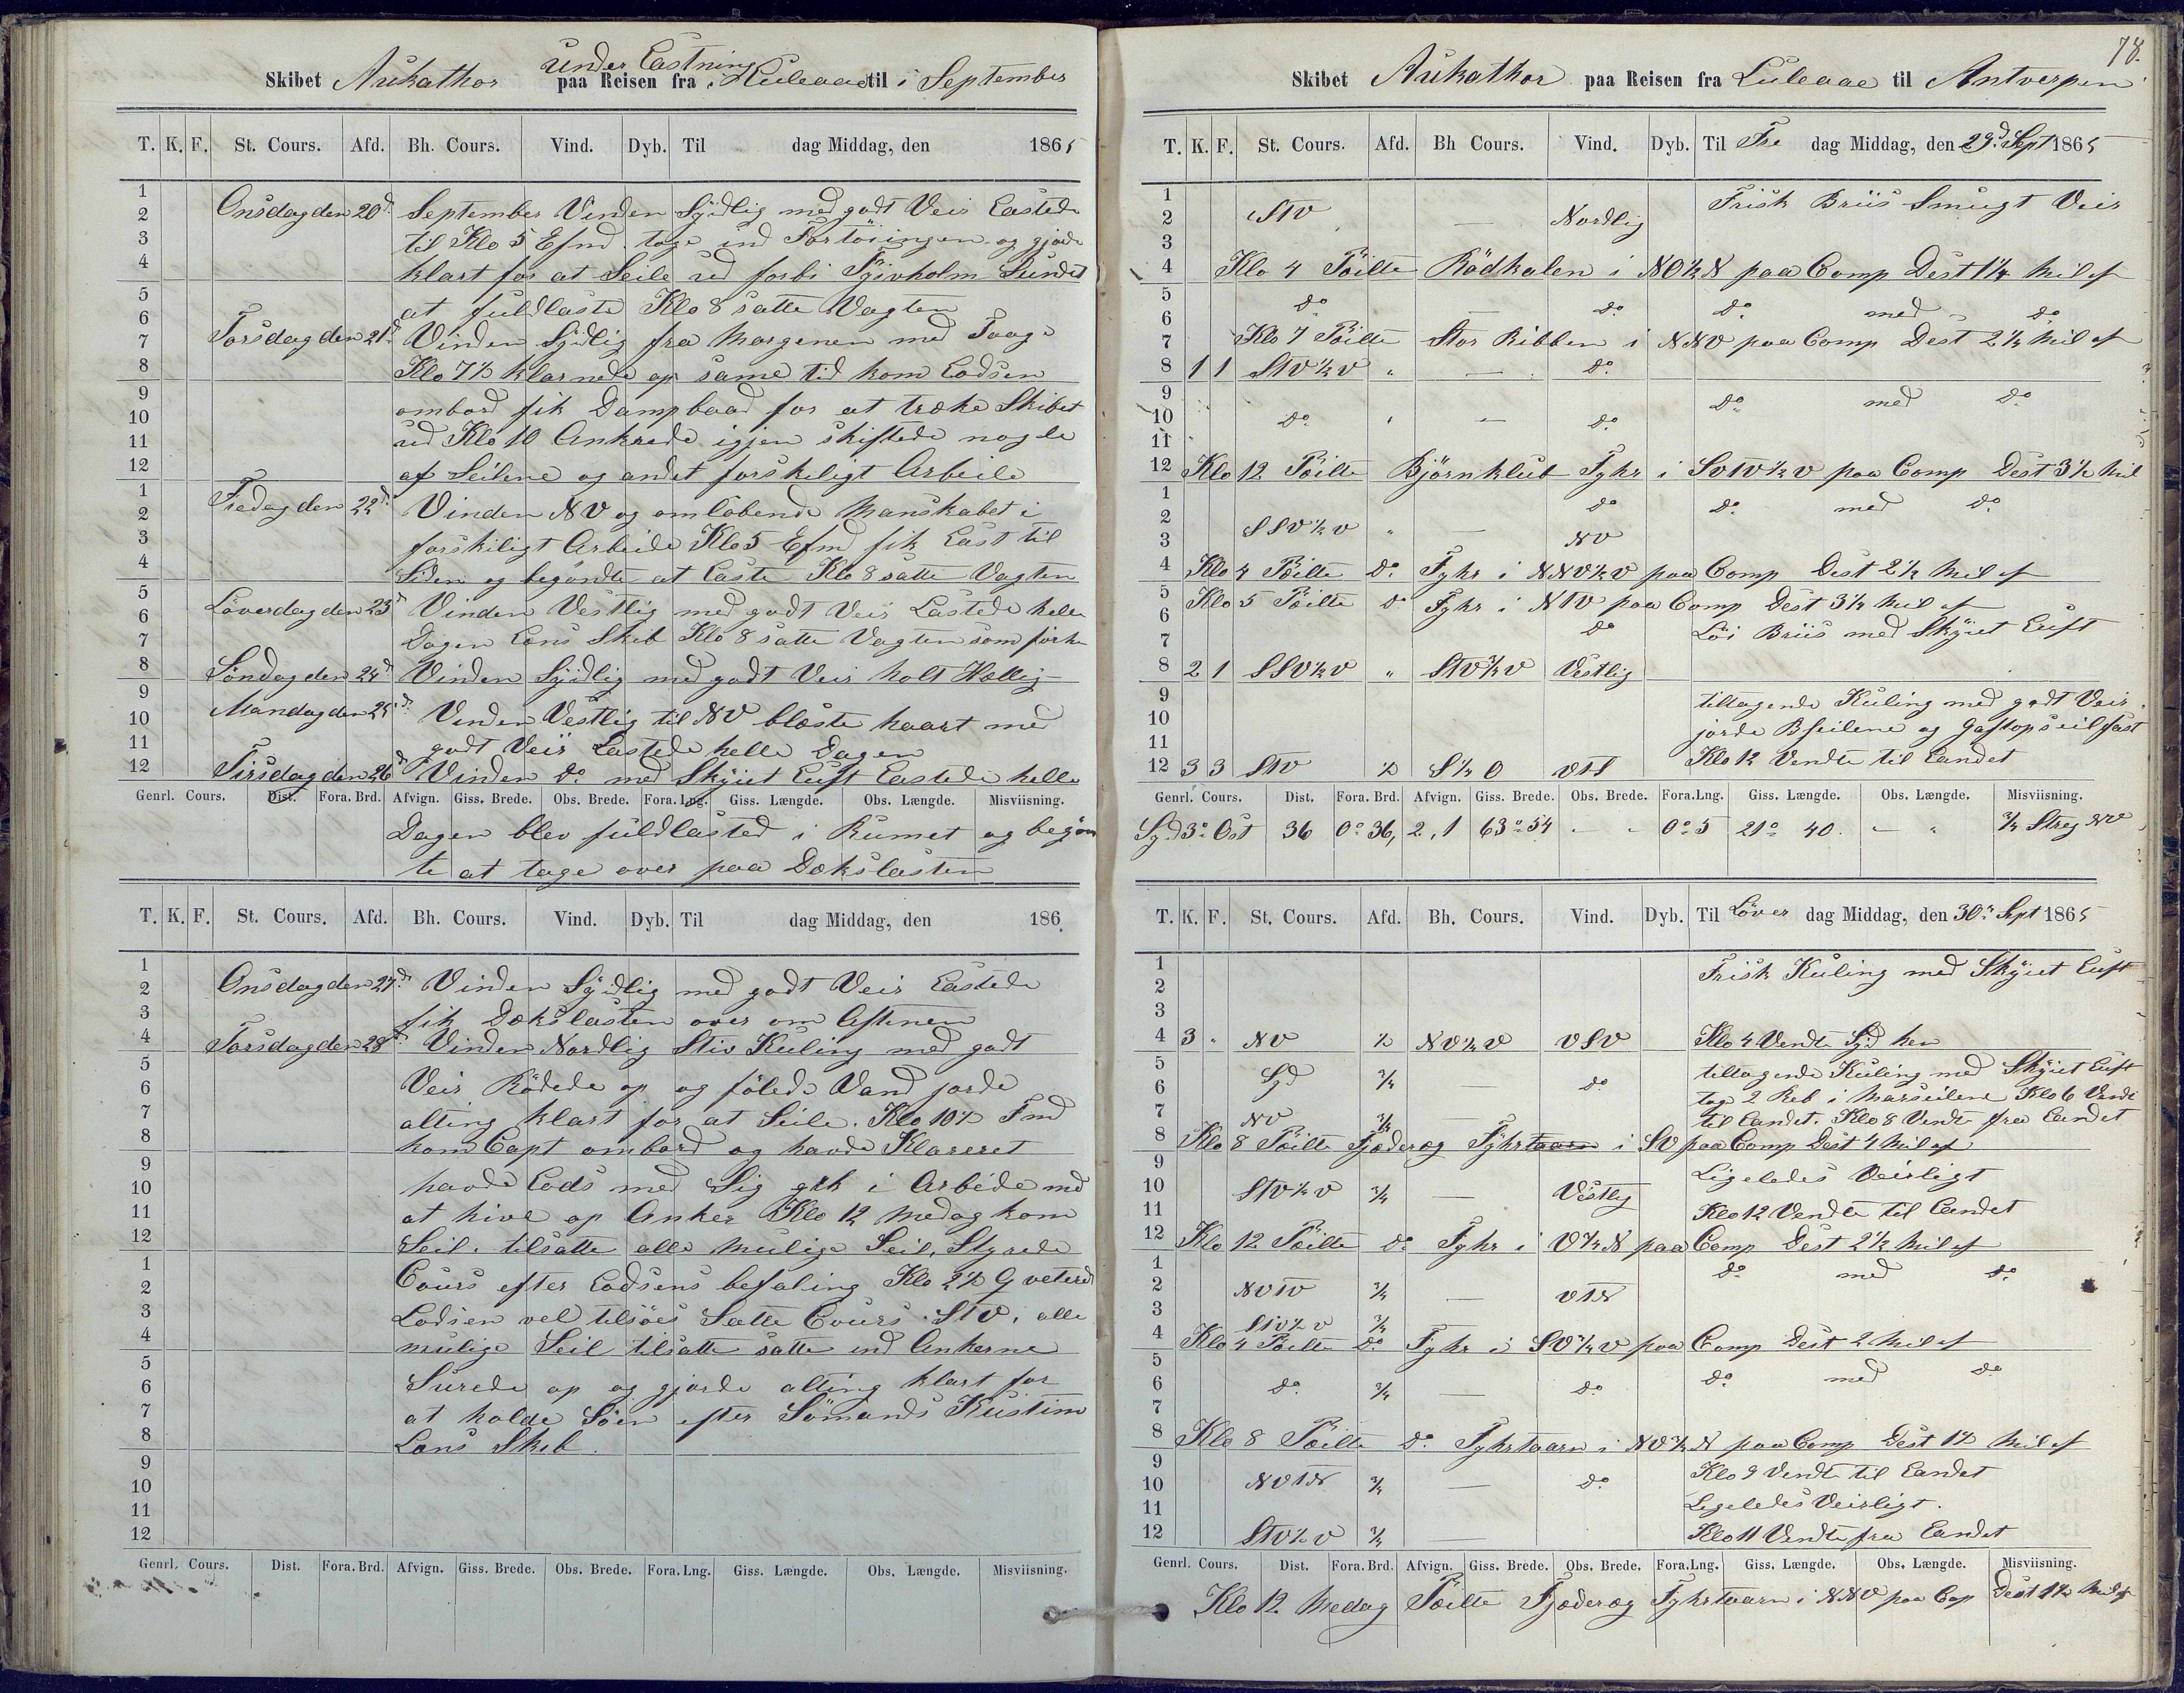 under Lastning
Skibet Aukathor paa Reisen fra i Luleaae til i September
T. K. F. St. Cours. Afd. Bh. Cours. Vind. Dyb. Til dag Middag, den 1865
Onsdag den 20d September Vinden Sydlig med godt Veir Lastede
til Klo 5 Efmd. toge ind Fortöiningen og gjorde
klart for at Seile ud forbi Sundet
at fuldlaste Klo 8 satte Vagten
Torsdag den 21d Vinden Sydlig fra Morgenen med Taage
Klo 7½ klarnede op same tid kom Lodsen
ombord fik Dampbaad for at træke Skibet
ud Klo 10 Ankrede igjen skiftede nogle
af Seilene og andet forskeligt Arbeide
Fredag den 22d Vinden NV og omlöbende Manskabet i
forskiligt Arbeide Klo 5 Efmd fik Last til
Siden og begöndte at Laste Klo 8 satte Vagten
Löverdag den 23d Vinden Vestlig med godt Veir Lastede hele
Dagen Lens Skib Klo 8 satte Vagten som för
Söndag den 24d Vinden Sydlig med godt Veir holt Hellig
Mandag den 25d Vinden Vestlig til NV blæste haart med
godt Veir Lastede helle Dagen
Tirsdag den 26d Vinden do med Skyiet Luft Lastede helle
Genrl. Cours. Dist. Fora. Brd. Afvign. Giss. Brede. Obs. Brede. Fora. Lng. Giss. Længde. Obs. Længde. Misviisning.
Dagen blev fuldlasted i Rumet og begön
te at tage over paa Dækslasten
T. K. F. St. Cours. Afd. Bh. Cours. Vind. Dyb. Til dag Middag, den 186
Onsdag den 27d Vinden Sydlig med godt Veir Lastede
fik Dækslasten over om Aftenen
Torsdag den 28d Vinden Nordlig Stiv Kuling med godt
Veir Rödede op og fölede Vand jorde
alting klart for at Seile. Klo 10½ Fmd
kom Capt ombord og havde Klareret
havde Lods med Sig gik i Arbeide med
at hive op Anker Klo 12 Medag kom
Seil. tilsatte alle mulige Seil, Styrede
Cours efter Lodsens befaling Klo 2½ Qveterede
Lodsen vel tilsöes Satte Cours StV. alle
mulige Seil tilsatte satte ind Ankerne
Surede op og gjorde alting klart for
at holde Söen efter Sömands Kustime
Lens Skib.
Genrl. Cours. Dist. Fora. Brd. Afvign. Giss. Brede. Obs. Brede. Fora. Lng. Giss. Længde. Obs. Længde. Misviisning.
78.
Skibet Aukathor paa Reisen fra Luleaae til Antverpen
T. K. F. St. Cours. Afd. Bh Cours. Vind. Dyb. Til Fre dag Middag, den 29d Sept 1865
1 Frisk Briis Smugt Veir
2 StV — Nordlig
3
4 Klo 4 Pöilte Rödkalen i NO½N paa Comp Dest 1¼ Mil af
5
6 do — do do med do
7 Klo 7 Pöilte Stor Ribben i NNV paa Comp Dest 2½ Mil af
8 1 1 StV½V " — do
9 do med do
10 do " — do
11
12 Klo 12 Pöilte Björnklub Fyhr i SVtV½V paa Comp Dest 3½ Mil
1 do do med do
2 SSV½V " —
3 NV
4 Klo 4 Pöilte do Fyhr i NNV½V paa Comp Dest 2½ Mil af
5 Klo 5 Pöilte do Fyhr i NtV paa Comp Dest 3½ Mil af
6 do Löi Briis med Skyiet Luft
7
8 2 1 SSV½V " StV¾V Vestlig
9 tiltagende Kuling med godt Veir.
10 jorde Bseilene og Gaftopseil fast
11
12 3 3 StV ½ S½O VtS Klo 12 Vendte til Landet
Genrl. Cours. Dist. Fora. Brd. Afvign. Giss. Brede. Obs. Brede. Fora. Lng. Giss. Længde. Obs. Længde. Misviisning.
Syd 3° Ost 36 0° 36, 2,1 63° 54 - - 0° 5 21° 40. - " ¾ Streg NV
T. K. F. St. Cours. Afd. Bh. Cours. Vind. Dyb. Til Löver dag Middag, den 30te Sept 1865
1 Frisk Kuling med Skyiet Luft
2
3
4 3 " NV ½ NV½V VSV Klo 4 Vendte Syd hen
5 Syd ¾ — tiltagende Kuling med Skyiet Luft
6 do tage 2 Reb i Marseilene Klo 6 Vendte
7 NV ¾ til Landet. Klo 8 Vendte fra Landet
8 Klo 8 Pöilte Fjæderæg Fyhrtaarn i SV paa Comp Dest 4 Mil af
9 Ligeledes Veirligt
10 StV½V ¾ — Vestlig
11 Klo 12 Vendte til Landet
12 Klo 12 Pöilte do Fyhr i V¾N paa Comp Dest 2½ Mil af
1 do med do
2 NVtV ¾ — VtN
3 StV½V ¾
4 Klo 4 Pöilte do Fyhr i SV¾V paa Comp Dest 2 Mil af
5
6 do ¾ — do do med do
7
8 Klo 8 Pöilte do Fyhrtaarn i NV¾N paa Comp Dest 1½ Mil af
9 Klo 9 Vendte til Landet
10 NVtN ¾ — do
11 Ligeledes Veirligt.
12 StV½V ¾ — Klo 11 Vendte fra Landet
Genrl. Cours. Dist. Fora. Brd. Afvign. Giss. Brede. Obs. Brede. Fora. Lng. Giss. Længde. Obs. Længde. Misviisning.
Klo 12 Medag Pöilte Fjæderæg Fyhrtaarn i NNV paa Cop Dest 1½ Mil af